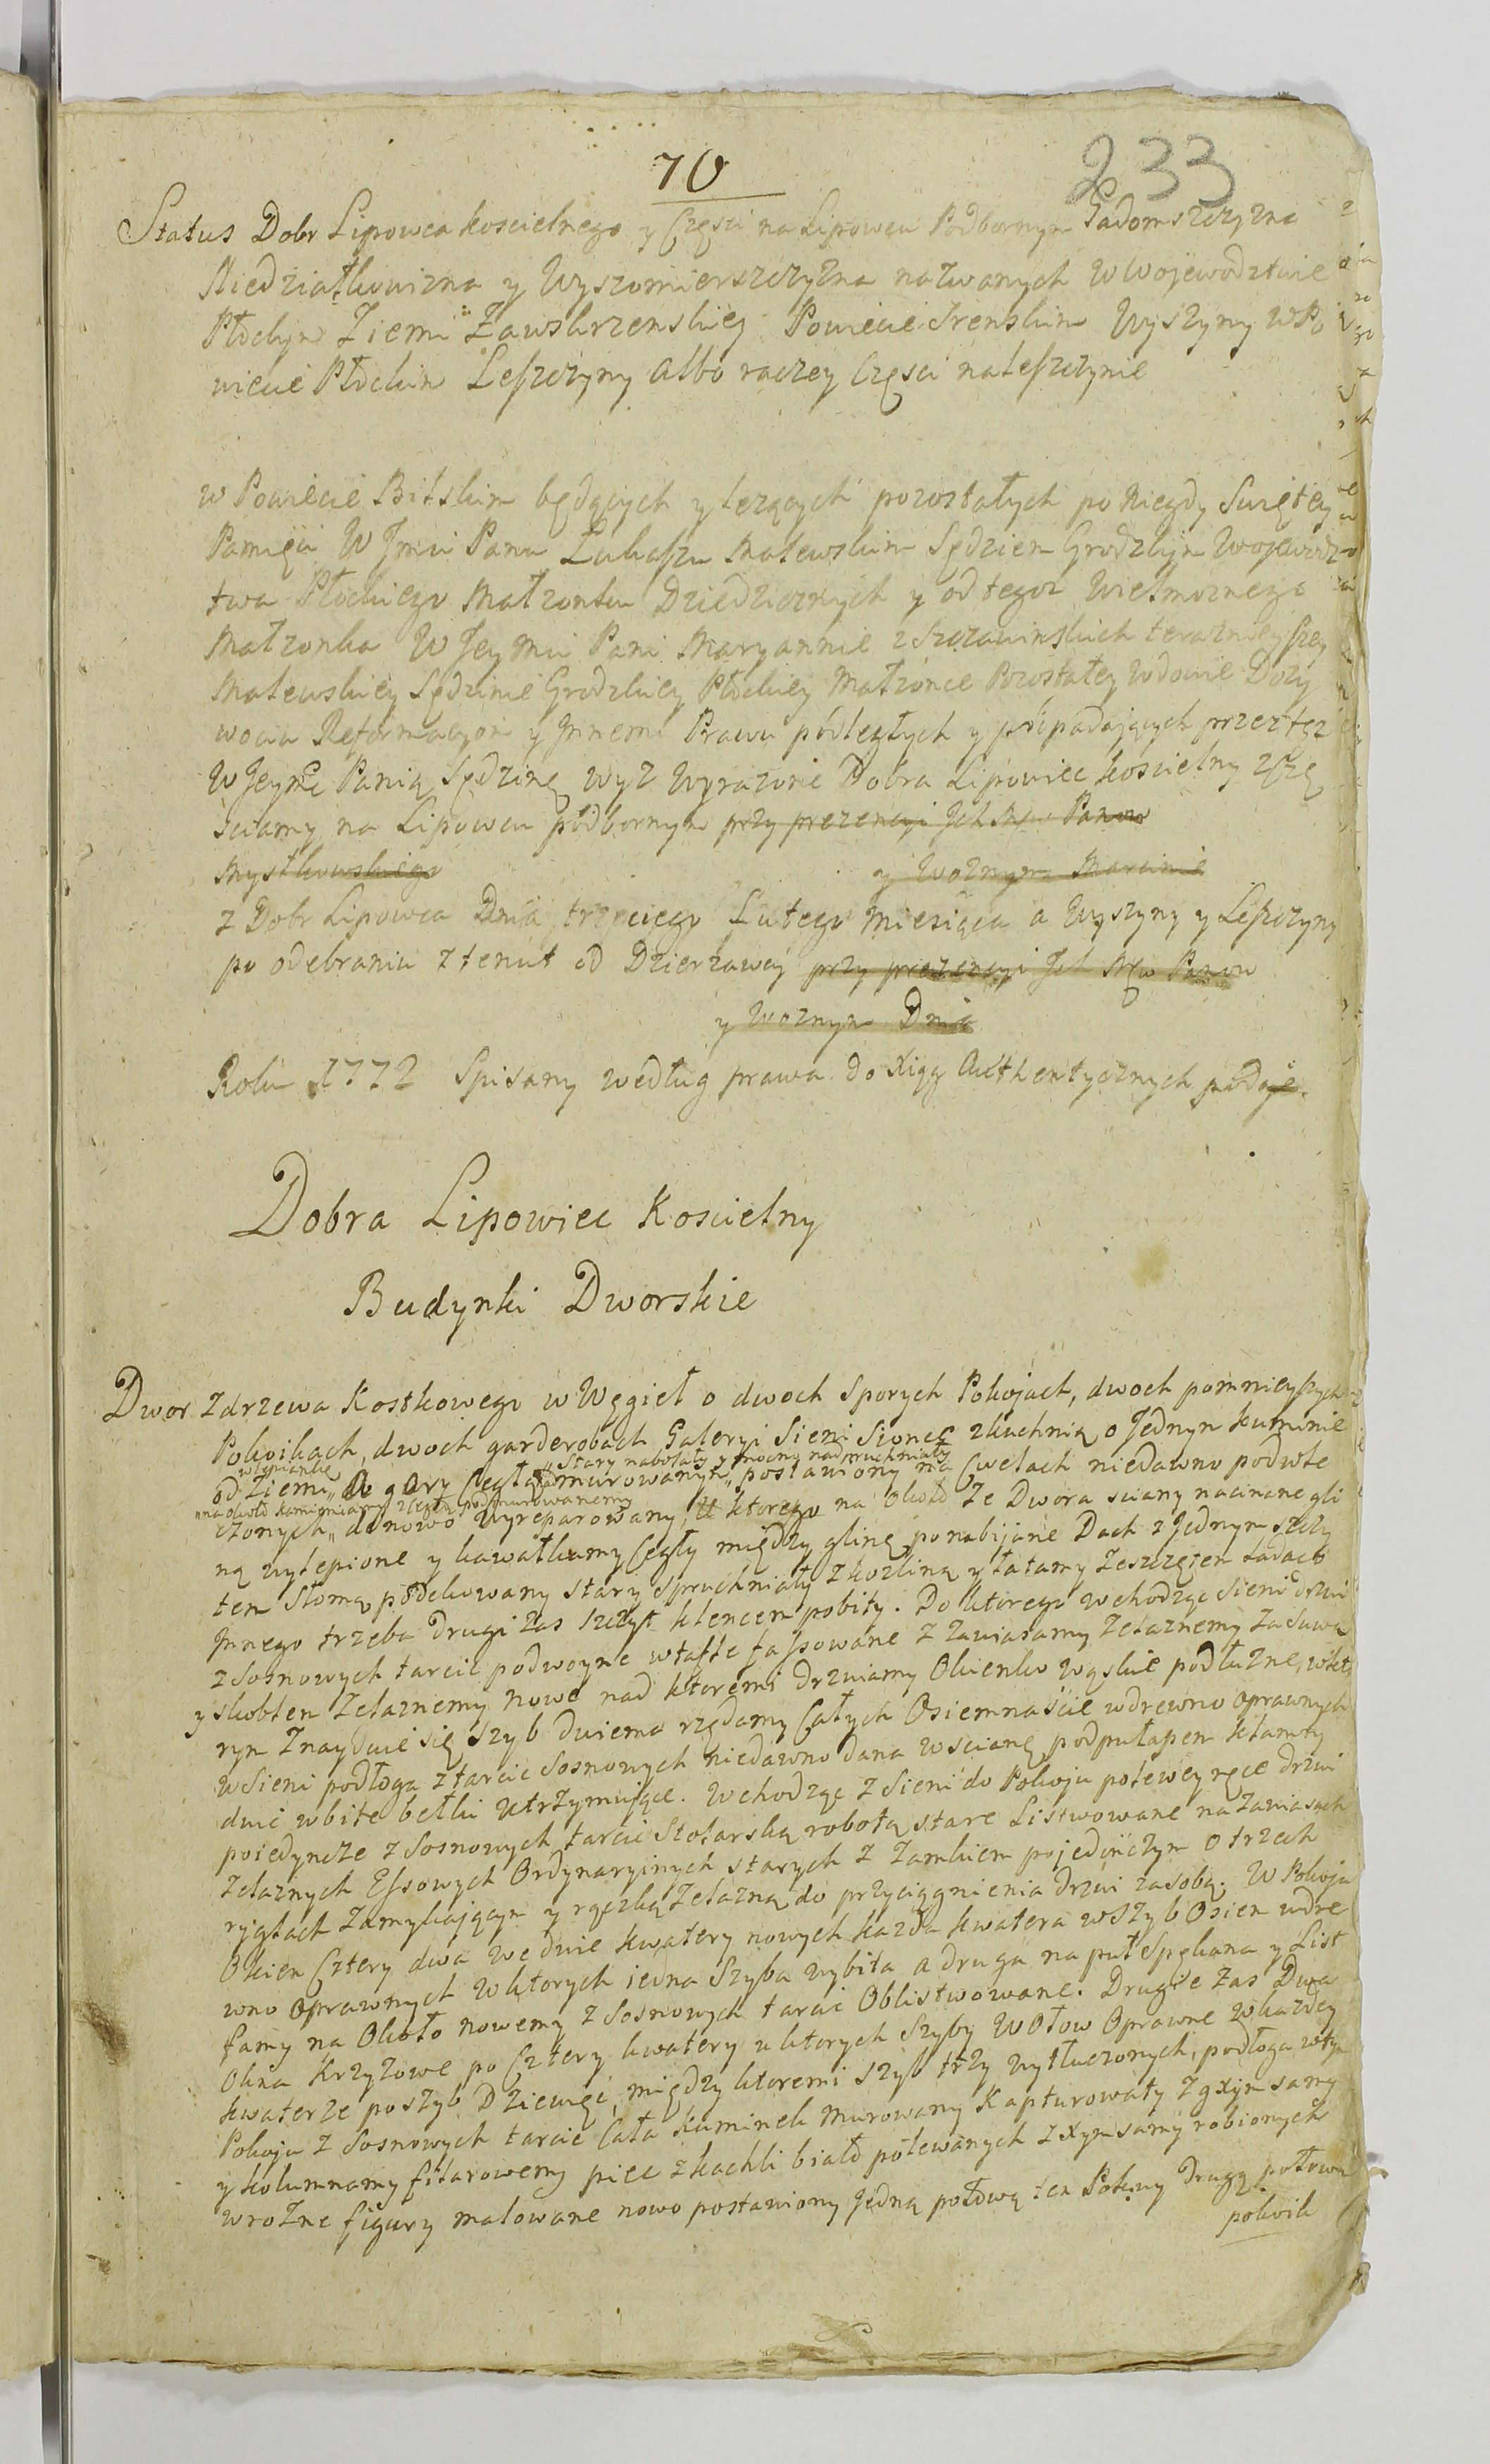 70
233
Status Dobr Lipowca koscielnego y Częsci na Lipowcu Podbornym Gadomszczyzna
Niedziałkowizna y Wyszomierszczyzna nazwanych w Wojewodztwie
Płockim Ziemi Zawskrzenskiey Powiecie Srenskim Wyszyny w Po
wiecie Płockim Leszczyny Albo raczey Częsci na Leszczynie
w Powiecie Bilskim będących y lezących pozostałych po Niegdy Swiętey
Pamięci W Jmci Panu Łukaszu Malewskim Sędziem Grodzkim Wojewodz
twa Płockiego Małzonku Dziedzicznych y od tegoz Wielmoznego
Małzonka W Jey Mci Pani Maryannie z Szczawinskich terazniejszey
Malewskiey Sędzinie Grodzkiey Płockiey Małzonce Pozostałey Wdowie Dozy
wociu Reformacyom y Jnnemi Prawu podległych y przypadających przez tęz
W Jeymć Panią Sędzinę wyz Wyrazone Dobra Lipowiec koscielny z Czę
sciamy na Lipowcu podbornym przy prezencyi Jch Mciw Panow
Mystkowskiego y Woznym Marcinie
z Dobr Lipowca Dnia trzeciego Lutego Miesiąca a Wyszyny y Leszczyny
po odebraniu z tenut od Dzierzawcy przy prezencyi Jch Mciw Panow
y Woznym Dnia
Roku 1772 Spisany według prawa do Xiąg Authentycznych podaje.
Dobra Lipowiec Koscielny
Budynki Dworskie
Dwor z drzewa Kostkowego w Węgieł o dwoch Sporych Pokojach, dwoch pomnieyszych
Pokoikach, dwoch garderobach Galeryi Sieni Sionce z kuchnią o Jednym kuminie
w Lipiankę „Stary nabotały y mocno nadpruchniały
od Ziemi, do gory Cegłą murowanym „ postawiony na Cwelach niedawno podwle
„na około kamieniamy z Cegłą podmurowanemy
czonych „ denowo Wyreparowany, U ktorego na około Ze Dwora sciany nacinane gli
ną wylepione y kawałkamy Cegły między glinę ponabijane Dach z Jednym szczy
tem Słomą podekowany stary spruchniały z kozliną y łatamy Zeszczętem Ladaco
Jnnego trzeba Drugi Zas szczyt klencem pobity. Do ktorego Wchodząc Sieni drzwi
z Sosnowych tarcic podwoyne w tafle fassowane z Zawiasamy Zelaznemy Zasuwą
y skoblem Zelaznemy nowe nad ktoremi drzwiamy Okienko Wąskie podłuzne, w kto
rym Znayduie się Szyb dwiema rzędamy Całych Osiemnascie w drewno oprawnych
w Sieni podłoga z tarcic Sosnowych niedawno dana w scianę podpułapem kłamry
dwie wbite belki Utrzymujące. Wchodząc z Sieni do Pokoju po lewey ręce drzwi
poiedyncze z Sosnowych tarcic Stolarską robotą stare Listwowane na Zawiasach
Zelaznych Essowych Ordynaryinych starych z Zamkiem pojedinczym o trzech
ryglach Zamykającym y rączką Zelazną do przyciągnienia drzwi za sobą. W Pokoju
Okien Cztery dwa we dwie kwatery nowych kazda kwatera w Szyb Osiem w dre
wno oprawnych w ktorych iedna Szyba wybita a druga na puł Spękana y List
famy na Około nowemy z Sosnowych tarcic Oblistwowane. Drugie Zas Dwa
Okna Krzyzowe po Cztery kwatery u ktorych Szyby w Ołow Oprawne w kazdey
kwaterze po szyb Dziewięć, między ktoremi szyb trzy wytłuczonych, podłoga w tym
Pokoju z Sosnowych tarcic Cała kuminek Murowany Kapturowaty z gxym samy
y kolumnamy filarowemy piec z kachli biało polewanych z xym samy robionych
w rozne figury malowane nowo postawiony Jedną połową ten Pokoy Drugą połową
pokoik